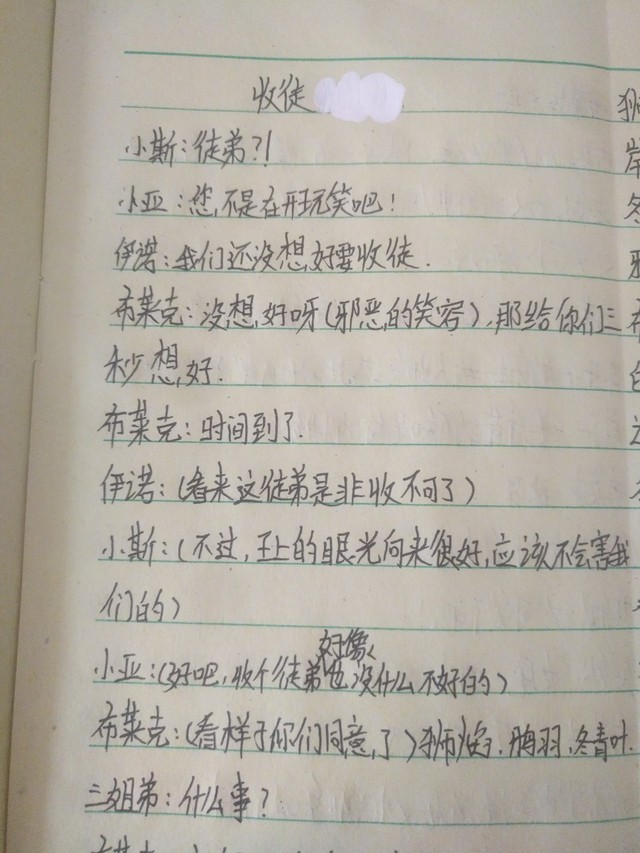 收徒
小斯：徒弟？！
小亚：您，不是在开玩笑吧！
伊诺：我们还没想好要收徒.
布莱克：没想好呀（邪恶的笑容），那给你们三
秒想好.
布莱克：时间到了.
伊诺：（看来这徒弟是非收不可了）
小斯：（不过，王上的眼光向来很好，应该不会害我
们的）
好像
小亚：（好吧，收个徒弟也没什么不好的）
布莱克：（看样子你们同意了）狮焰.鹃羽.冬青叶.
三姐弟：什么事？